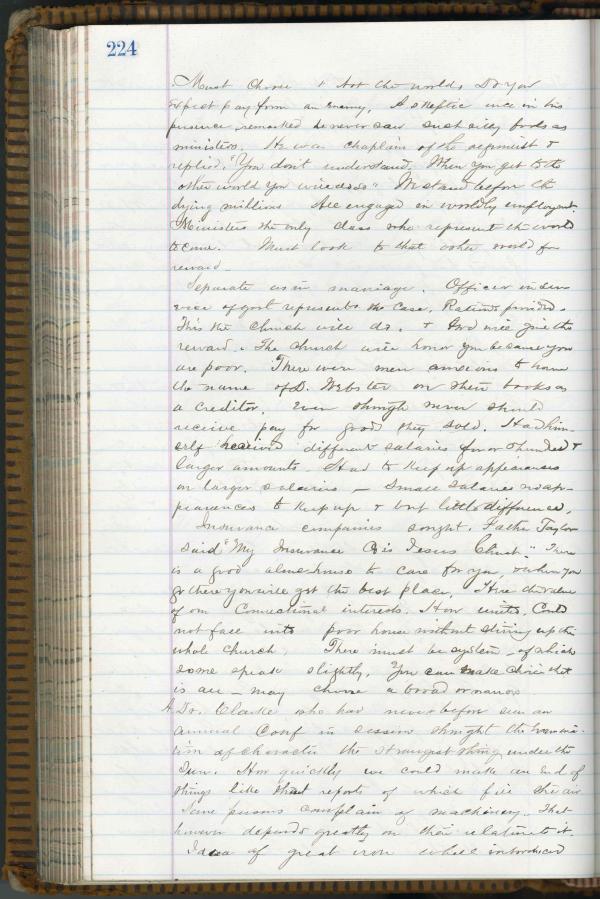 224
Must Choose & not the worlds Do you
expect pay form an Enemy, A skeptic once in his
presence remarked he never saw such silly books as
ministers. He was chaplain of the regiment &
replied. "You don't understand, When you get to the
other world you will " We stand before the
dying millions All engaged in worldly employment.
Ministers the only class who represent the world
to come. Must look to that other world for
reward —
Separate as in marriage. Officer in ser-
vice of govt represents the case. Rations provided.
This the Church will do. & God will give the
reward. The Church will honor you because you
are poor. There were men anxious to have
the name of D. Webster on their books as
a creditor, even though never should
receive pay for goods they sold. Had him-
self received different salaries few hundred &
larger amounts. Had to keep up appearances
on larger salaries — Small salaries no ap-
pearances to keep up & but little difference.
Insurance companies sought. Father Taylor
said "My Insurance Co is Jesus Christ." There
is a good alms-house to care for you, & when you
go there you will get the best place. Here the value
of our Connectional interests. How united. Could
not face into poor house without stirring up the
whole Church. There must be system — of which
some speak slightly. You can make choice that
is all — may choose a broad or narrow
A Dr. Clarke who had never before seen an
annual Conf in session thought the examina-
tion of character the strangest thing under the
Sun. How quickly we could make an end of
things like that reports of which fill the air
Some persons complain of machinery. That
however depends greatly on their relation to it.
Idea of great iron wheel introduced